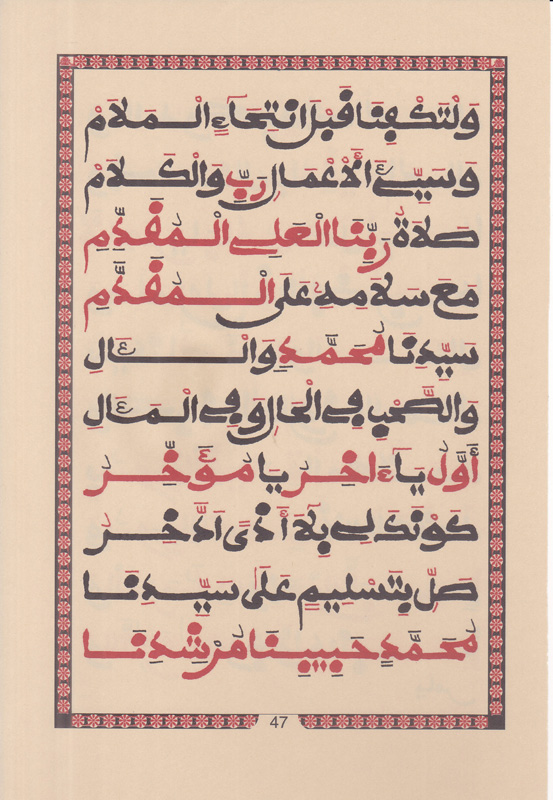 وَلْتَكْفِنَا قَبْلَ انْتِحَاءِ الْمَلَامْ
وَسَيِّءَ الْأَعْمَالِ رَبِّ وَالْكَلَامْ
صَلَاةُ رَبِّنَا الْعَلِي الْمُقَدِّمِ
مَعَ سَلَامِهِ عَلَى الْمُقَدَّمِ
سَيِّدِنَا مُحَمَّدٍ وَالْآلِ
وَالصَّحْبِ فِي الْحَالِ وَفِي الْمَآلِ
أَوَّلُ يَاءَاخِرُ يَا مُؤَخِّرُ
كَوْنَكَ لِي بِلَا أَذًى أَدَّخِرُ
صَلِّ بِتَسْلِيمٍ عَلَى سَيِّدِنَا
مُحَمَّدٍ حَبِيبِنَا مُرْشِدِنَا
47